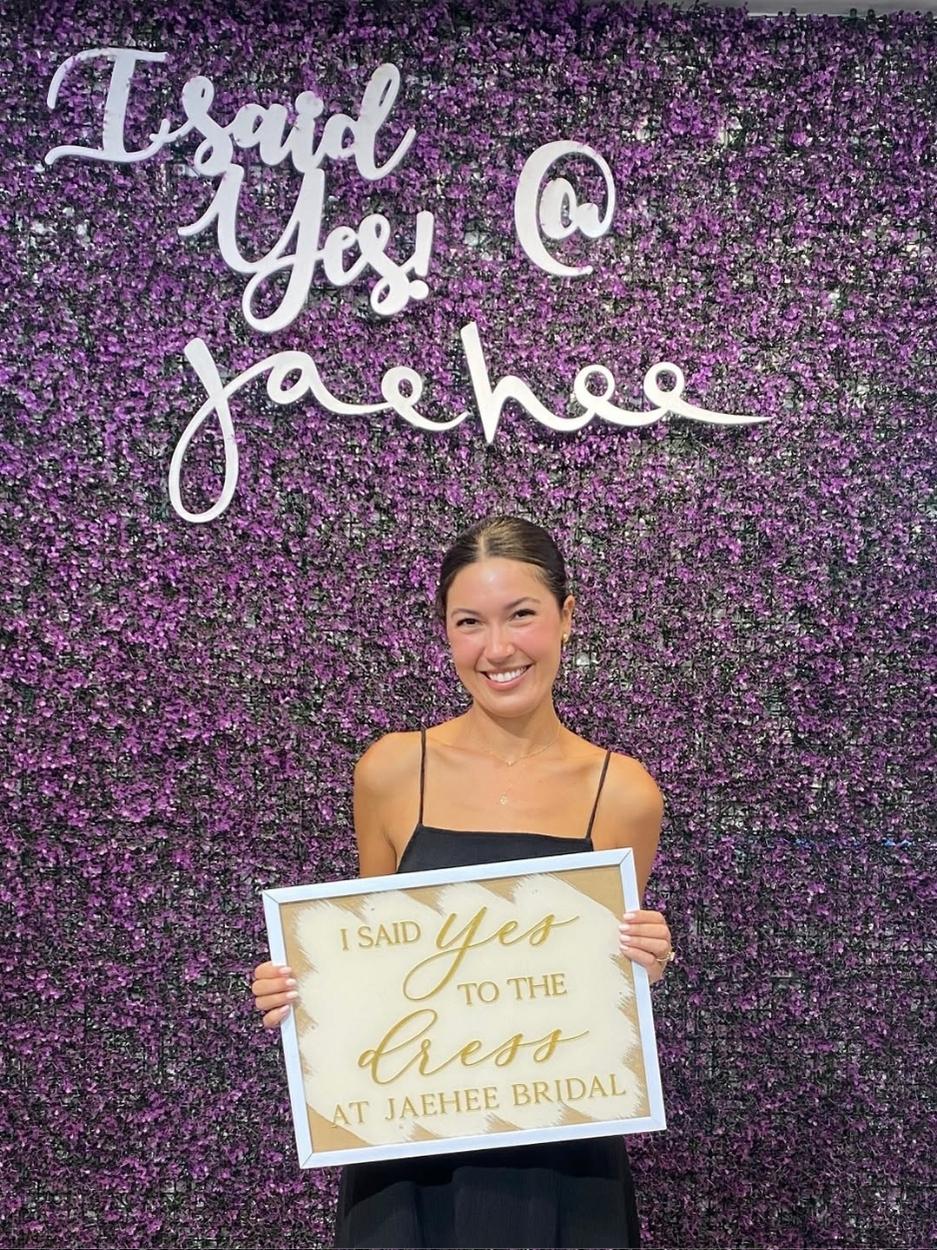 I said
Yes! @
jaehee
I SAID yes
TO THE
dress
AT JAEHEE BRIDAL